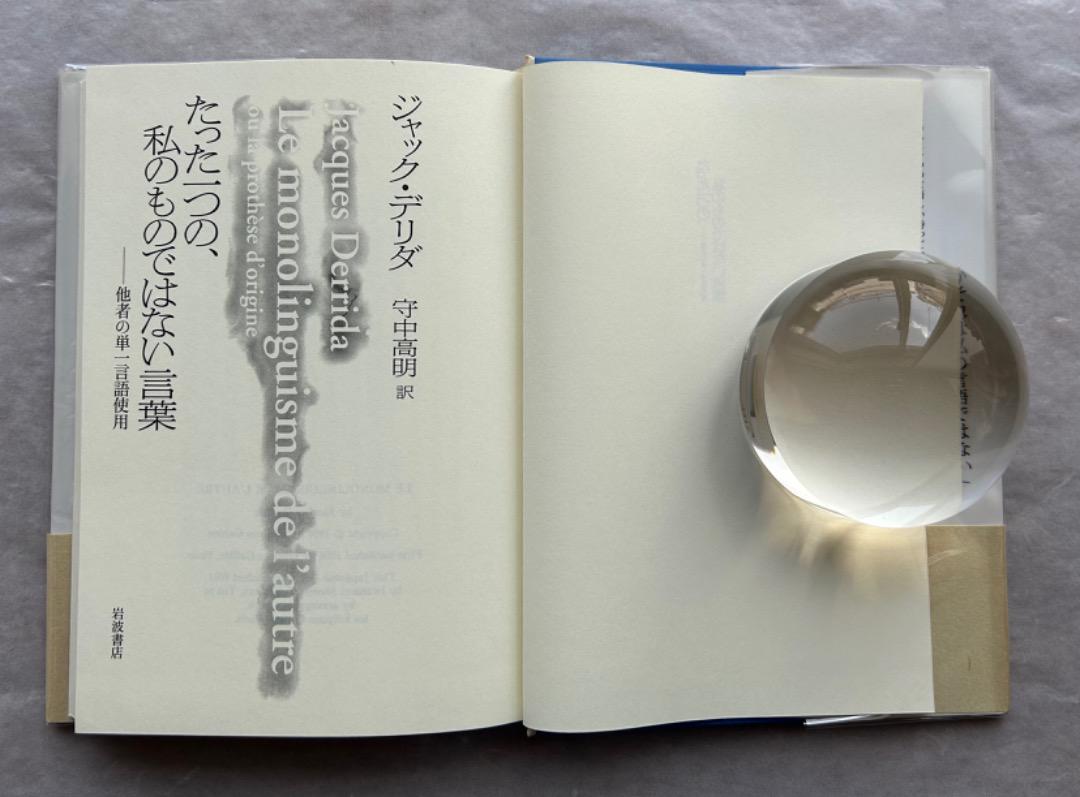 ジャック・デリダ 守中高明 訳
Jacques Derrida
Le monolinguisme de l'autre
ou la prothèse d'origine
たった一つの、
私のものではない言葉
——他者の単一言語使用
岩波書店